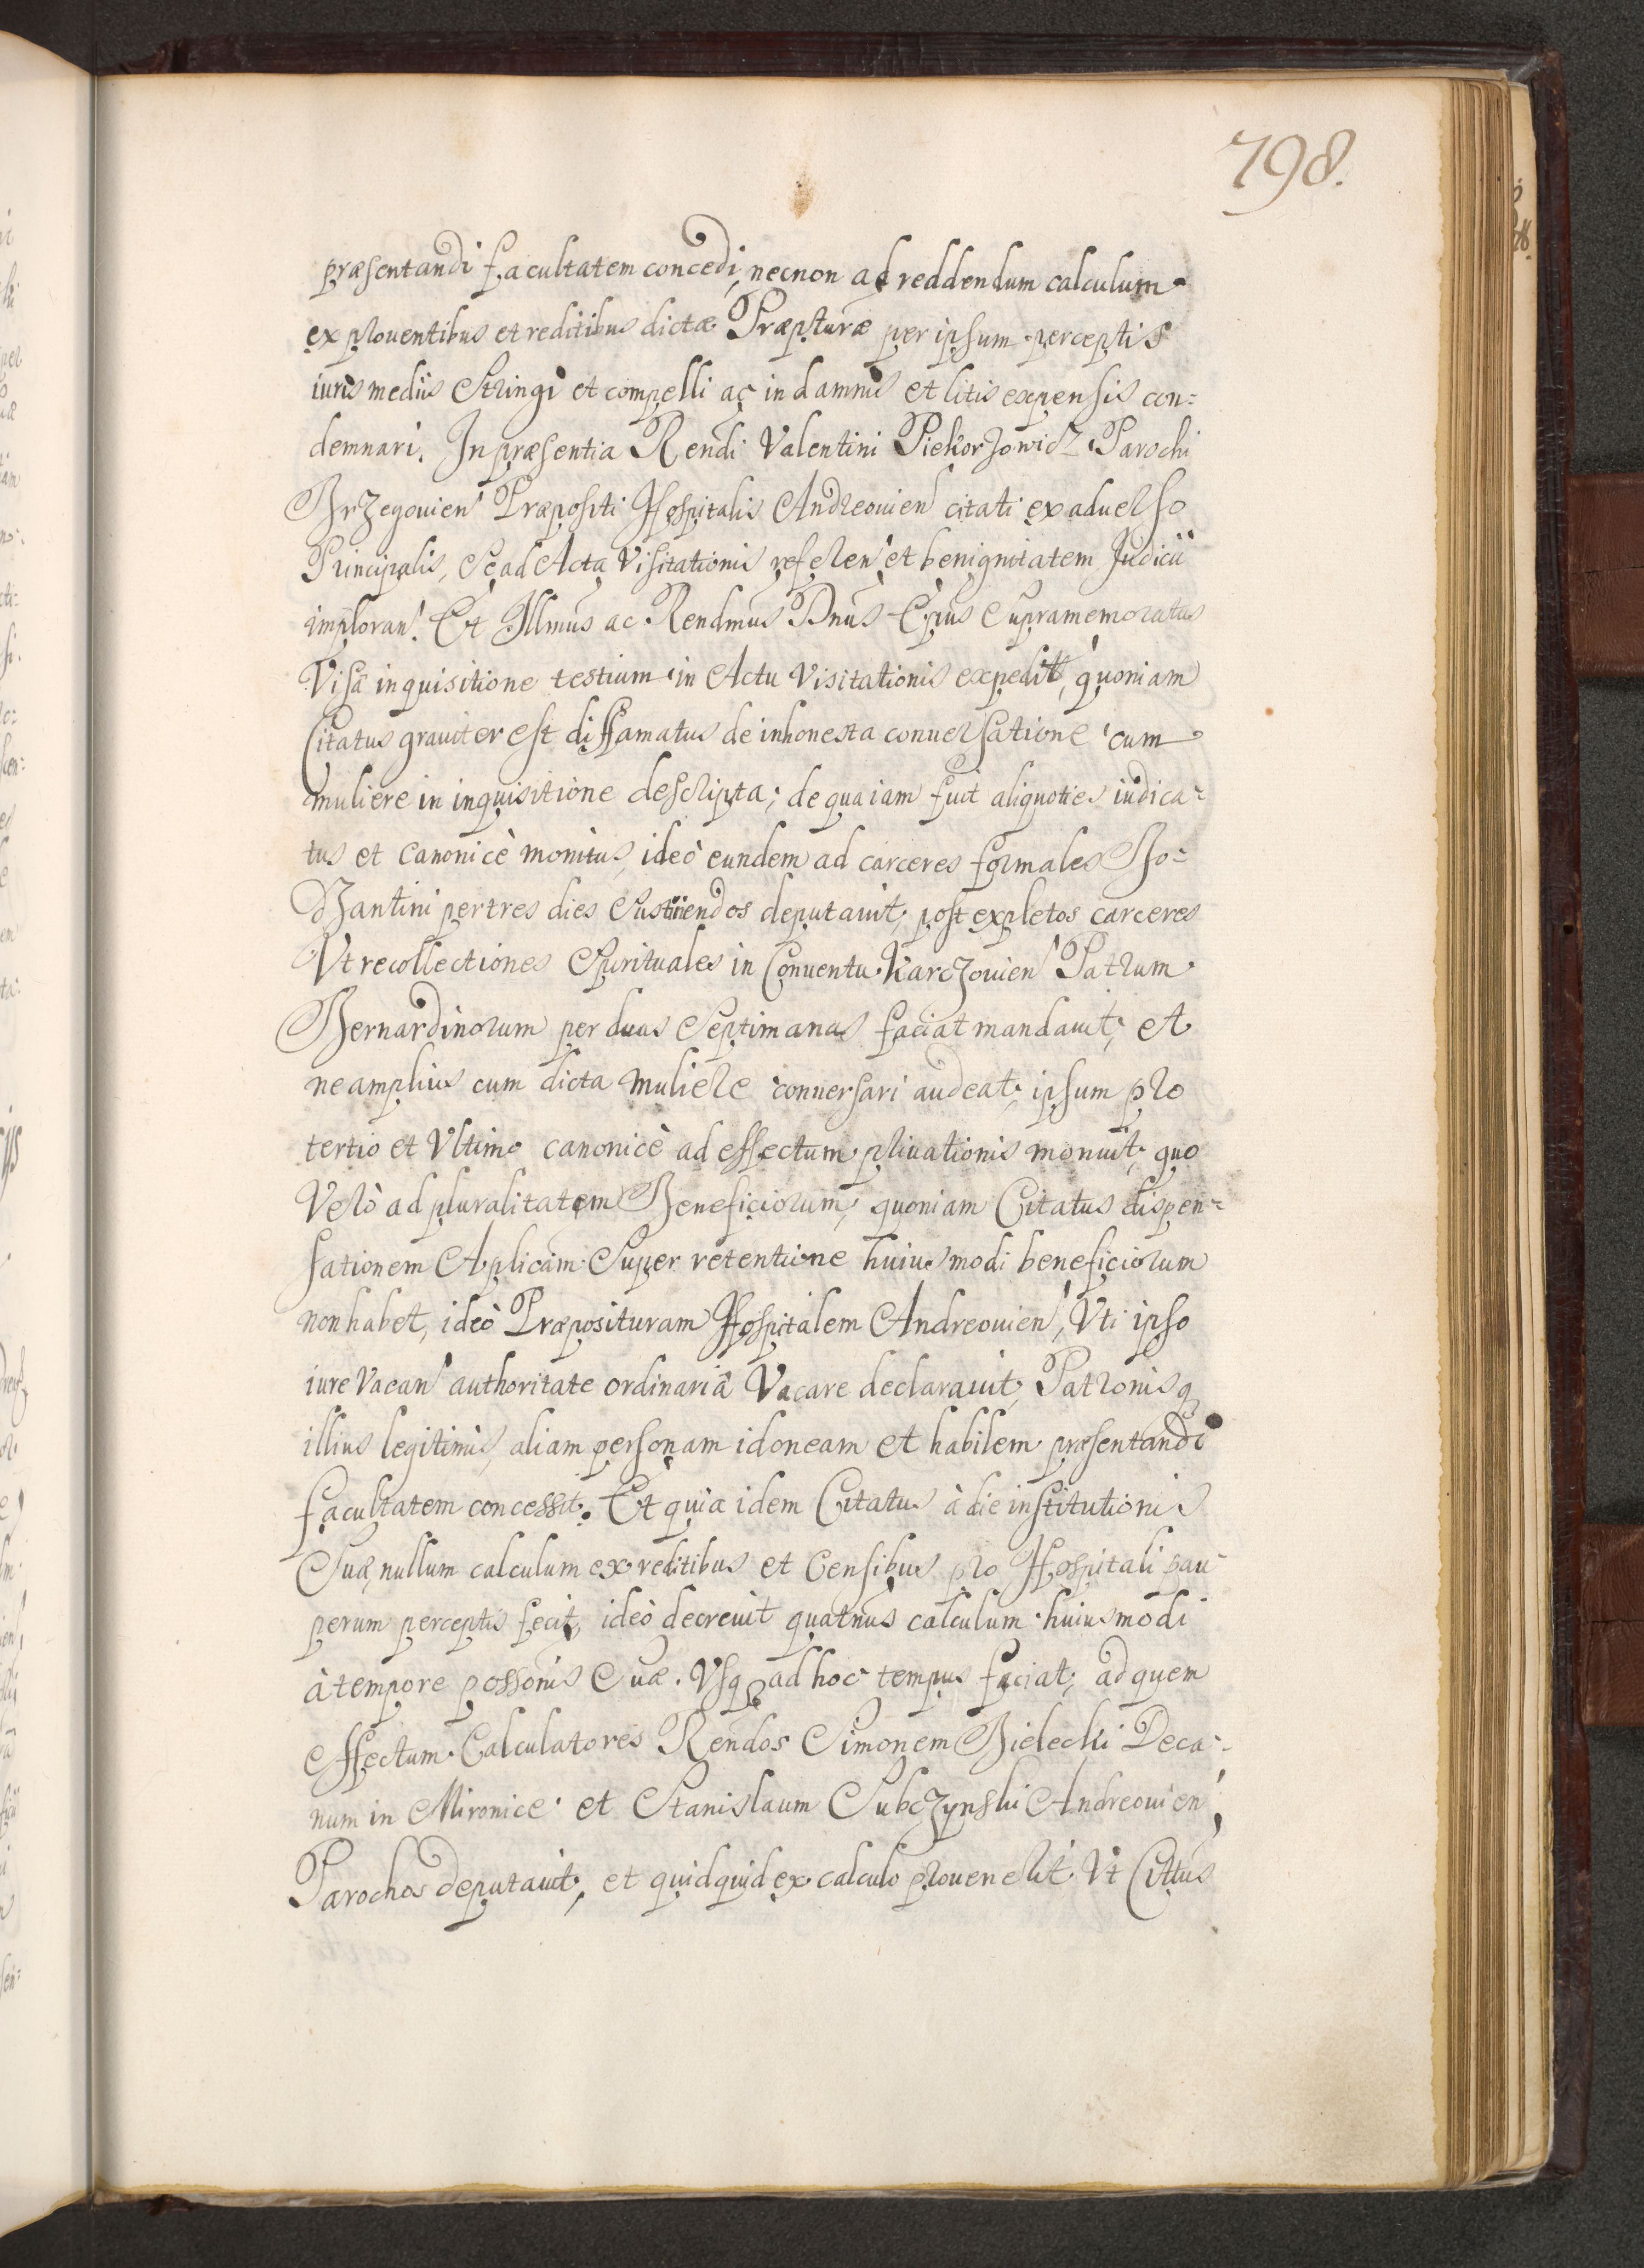 798.
præsentandi facultatem concedi, necnon ad reddendum calculum
ex prouentibus et reditibus dictæ Præpturæ per ipsum perceptis
iuris mediis stringi et compelli ac in damnis et litis expensis con=
demnari. In præsentia Rendi Valentini Piekorzowicz Parochi
Brzegouien' Præpositi Hospitalis Andreouien' citati ex aduerso
Principalis, se ad Acta Visitationis referen' et benignitatem Judicii
imploran'. Et Illmus ac Rendmus Dnus Epus supramemoratus
Visâ inquisitione testium in Actu Visitationis expedit', quoniam
Citatus grauiter est diffamatus de inhonesta conuersatione cum
muliere in inquisitione descripta; de qua iam fuit aliquoties iudica=
tus et canonicè monitus, ideò eundem ad carceres formales Bo=
dzantini per tres dies sustinendos deputauit, post expletos carceres
Vt recollectiones Spirituales in Conuentu Karczouien' Patrum
Bernardinorum per duas Septimanas faciat mandauit, et
ne amplius cum dicta muliere conuersari audeat, ipsum pro
tertio et Vltimo canonicè ad effectum priuationis monuit, quo
Verò ad pluralitatem Beneficiorum, quoniam Citatus dispen=
sationem Aplicam super retentione huiusmodi beneficiorum
non habet, ideò Præposituram Hospitalem Andreouien', Vti ipso
iure Vacan' authoritate ordinariâ Vacare declarauit, Patronisq
illius legitimis, aliam personam idoneam et habilem præsentandi
facultatem concessit. Et quia idem Citatus à die institutionis
Suæ, nullum calculum ex reditibus et censibus pro Hospitali pau=
perum perceptis fecit, ideò decreuit quatnus calculum huiusmodi
à tempore possonis suæ Vsq ad hoc tempus faciat, ad quem
effectum Calculatores Rendos Simonem Bielecki Deca=
num in Mironice et Stanislaum Subczynski Andreouien'
Parochos deputauit, et quidquid ex calculo prouenerit Vt Cittus